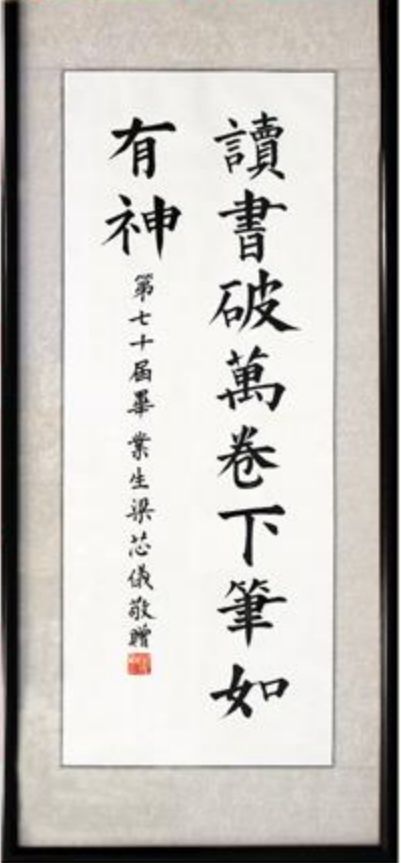 讀書破萬卷下筆如
有神
第七十屆畢業生梁芯儀敬贈